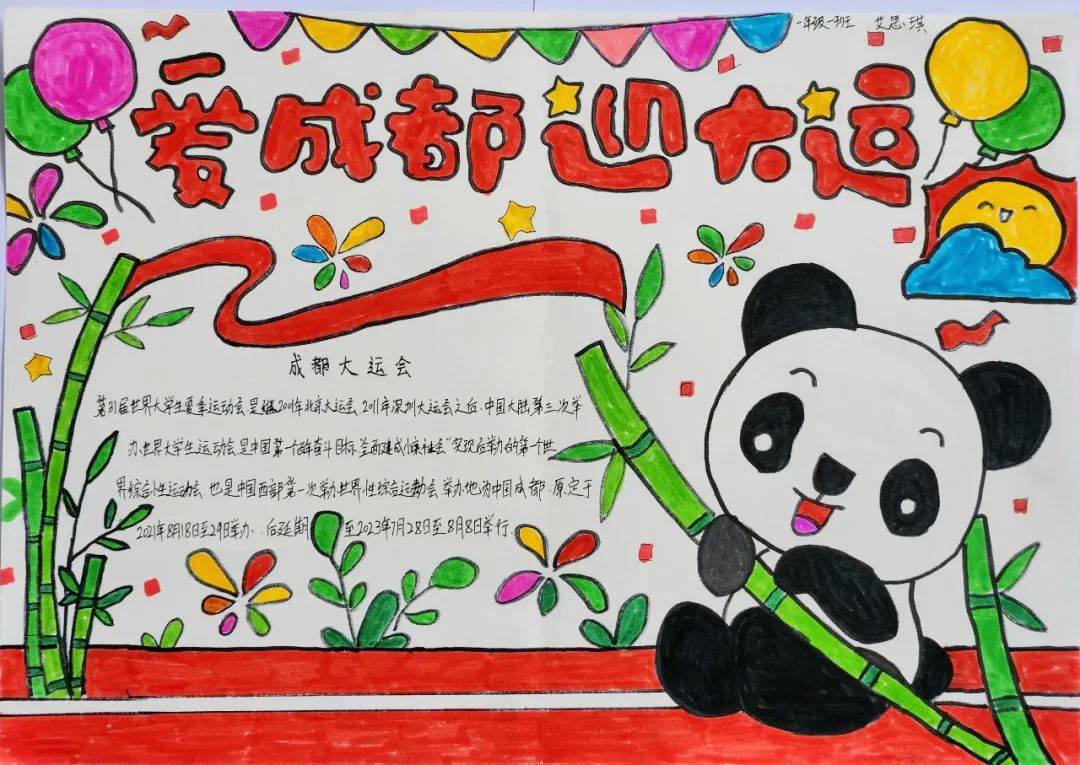 一年级一班 艾思琪
爱成都迎大运
成都大运会
第31届世界大学生夏季运动会,是继2001年北京大运会,2011年深圳大运会之后,中国大陆第三次举
办世界大学生运动会,是中国第一个百年奋斗目标,全面建成小康社会"实现后举办的第一个世
界综合性运动会.也是中国西部第一次举办世界性综合运动会,举办地为中国成都.原定于
2021年8月18日至29日举办.后延期 至2023年7月28日至8月8日举行.